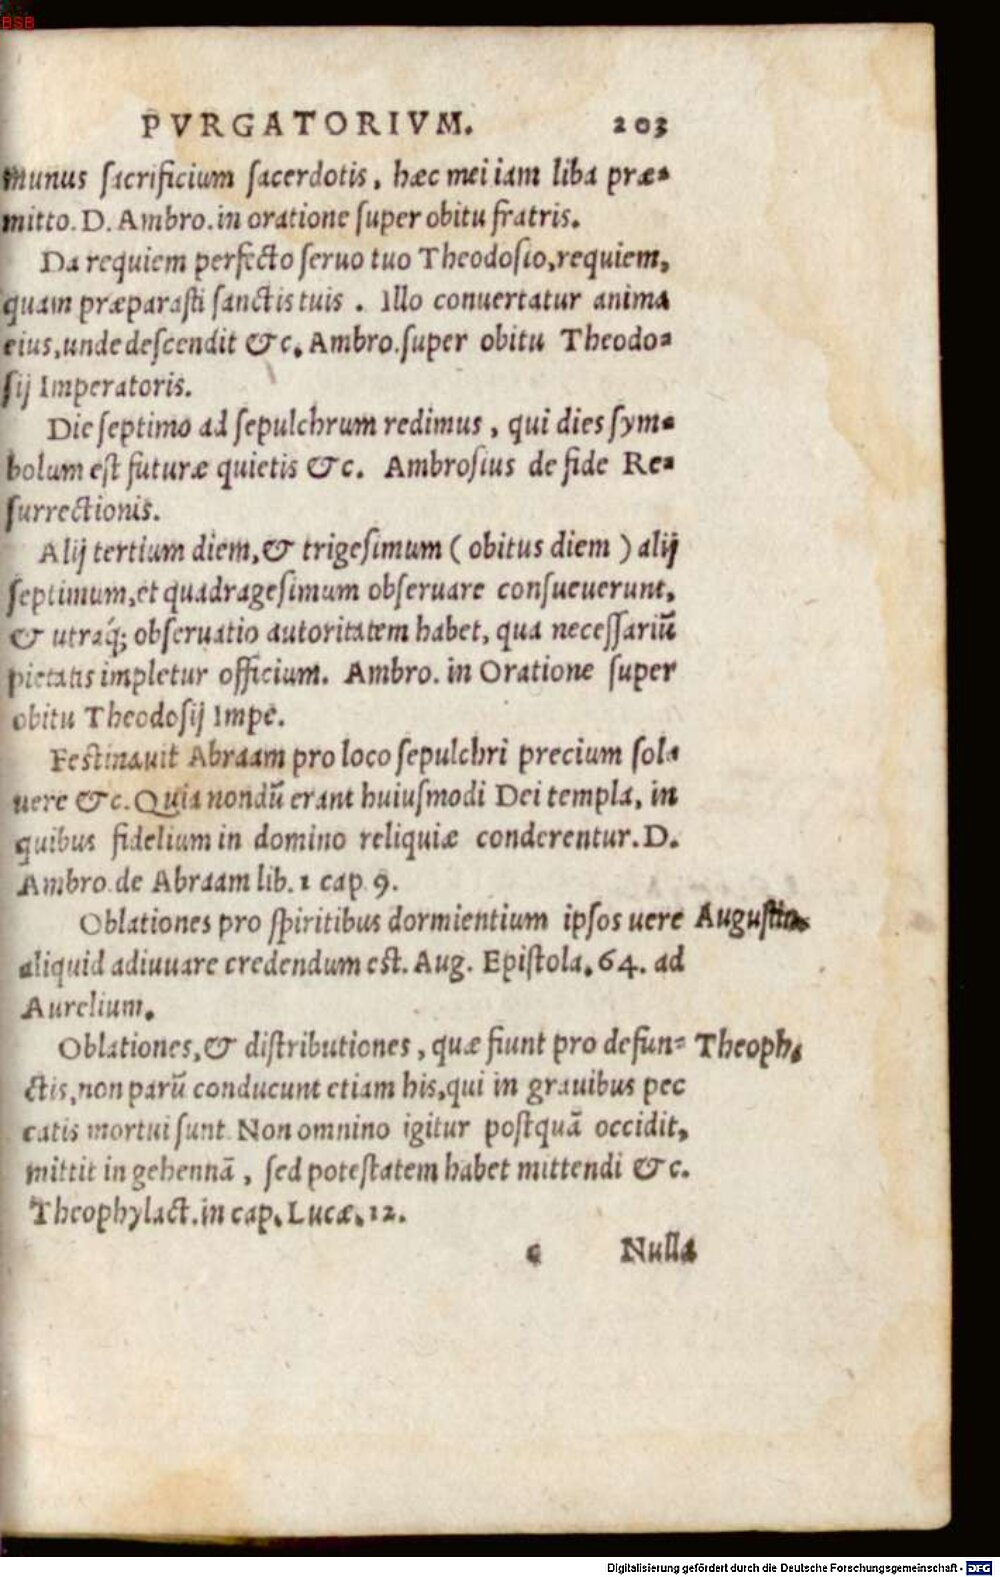 BSB
PVRGATORIVM. 203
munus sacrificium sacerdotis, hæc mei iam liba præ-
mitto. D. Ambro. in oratione super obitu fratris.
Da requiem perfecto seruo tuo Theodosio, requiem,
quam præparasti sanctis tuis. Illo conuertatur anima
eius, unde descendit &c. Ambro. super obitu Theodo-
sij Imperatoris.
Die septimo ad sepulchrum redimus, qui dies sym-
bolum est futuræ quietis &c. Ambrosius de fide Re-
surrectionis.
Alij tertium diem, & trigesimum (obitus diem) alij
septimum, et quadragesimum obseruare consueuerunt,
& utraq́; obseruatio autoritatem habet, qua necessariũ
pietatis impletur officium. Ambro. in Oratione super
obitu Theodosij Impe.
Festinauit Abraam pro loco sepulchri precium sol-
uere &c. Quia nondũ erant huiusmodi Dei templa, in
quibus fidelium in domino reliquiæ conderentur. D.
Ambro. de Abraam lib. 1 cap 9.
Oblationes pro spiritibus dormientium ipsos uere Augustin.
aliquid adiuuare credendum est. Aug. Epistola. 64. ad
Aurelium.
Oblationes, & distributiones, quæ fiunt pro defun- Theoph.
ctis, non parũ conducunt etiam his, qui in grauibus pec
catis mortui sunt. Non omnino igitur postquã occidit,
mittit in gehennã, sed potestatem habet mittendi &c.
Theophylact. in cap. Lucæ. 12.
c Nulla
Digitalisierung gefördert durch die Deutsche Forschungsgemeinschaft - DFG